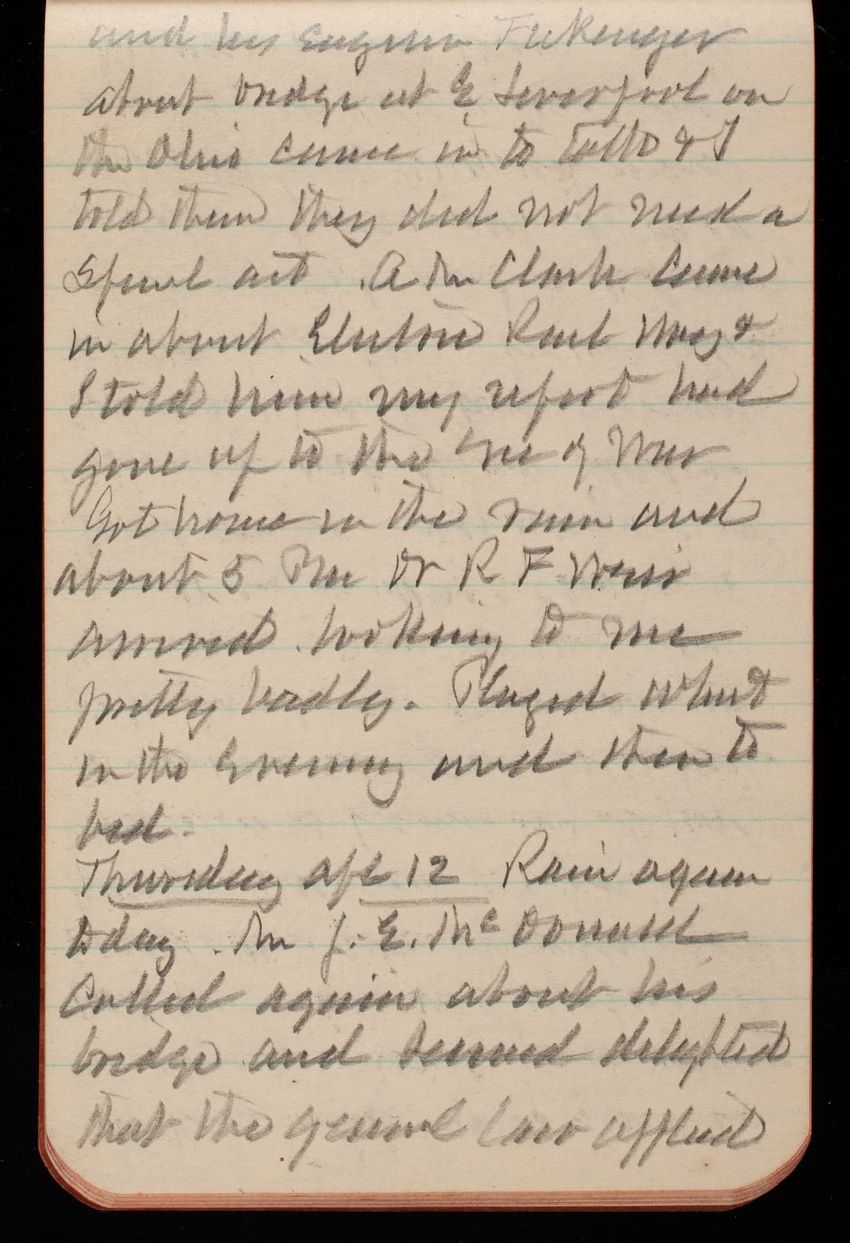 and his Engineer
about bridge at E Liverpool on
the Ohio came in to talk & I
told them they did not need a
Special act. A Mr Clark came
in about Electric Rail Way &
I told him my report had
gone up to the Sec of War
Got home in the rain and
about 5 PM Dr R F Weir
arrived looking to me
pretty badly. Played whist
in the Evening and then to
bed.
Thursday Apl 12 Rain again
today. Mr J. E. McDonald
Called again about his
bridge and seemed delighted
that the general law applied